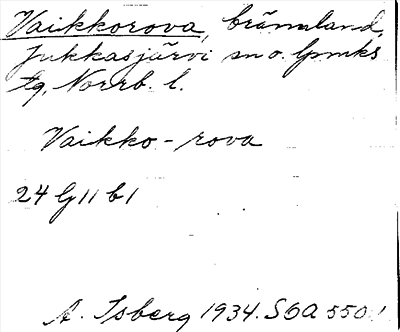 Vaikkorova, brännland,
Jukkasjärvi sn o. lpmks
tg, Norrb. l.
Vaikko-rova
24 G 11 b 1
A. Isberg 1934. SOA 550:1